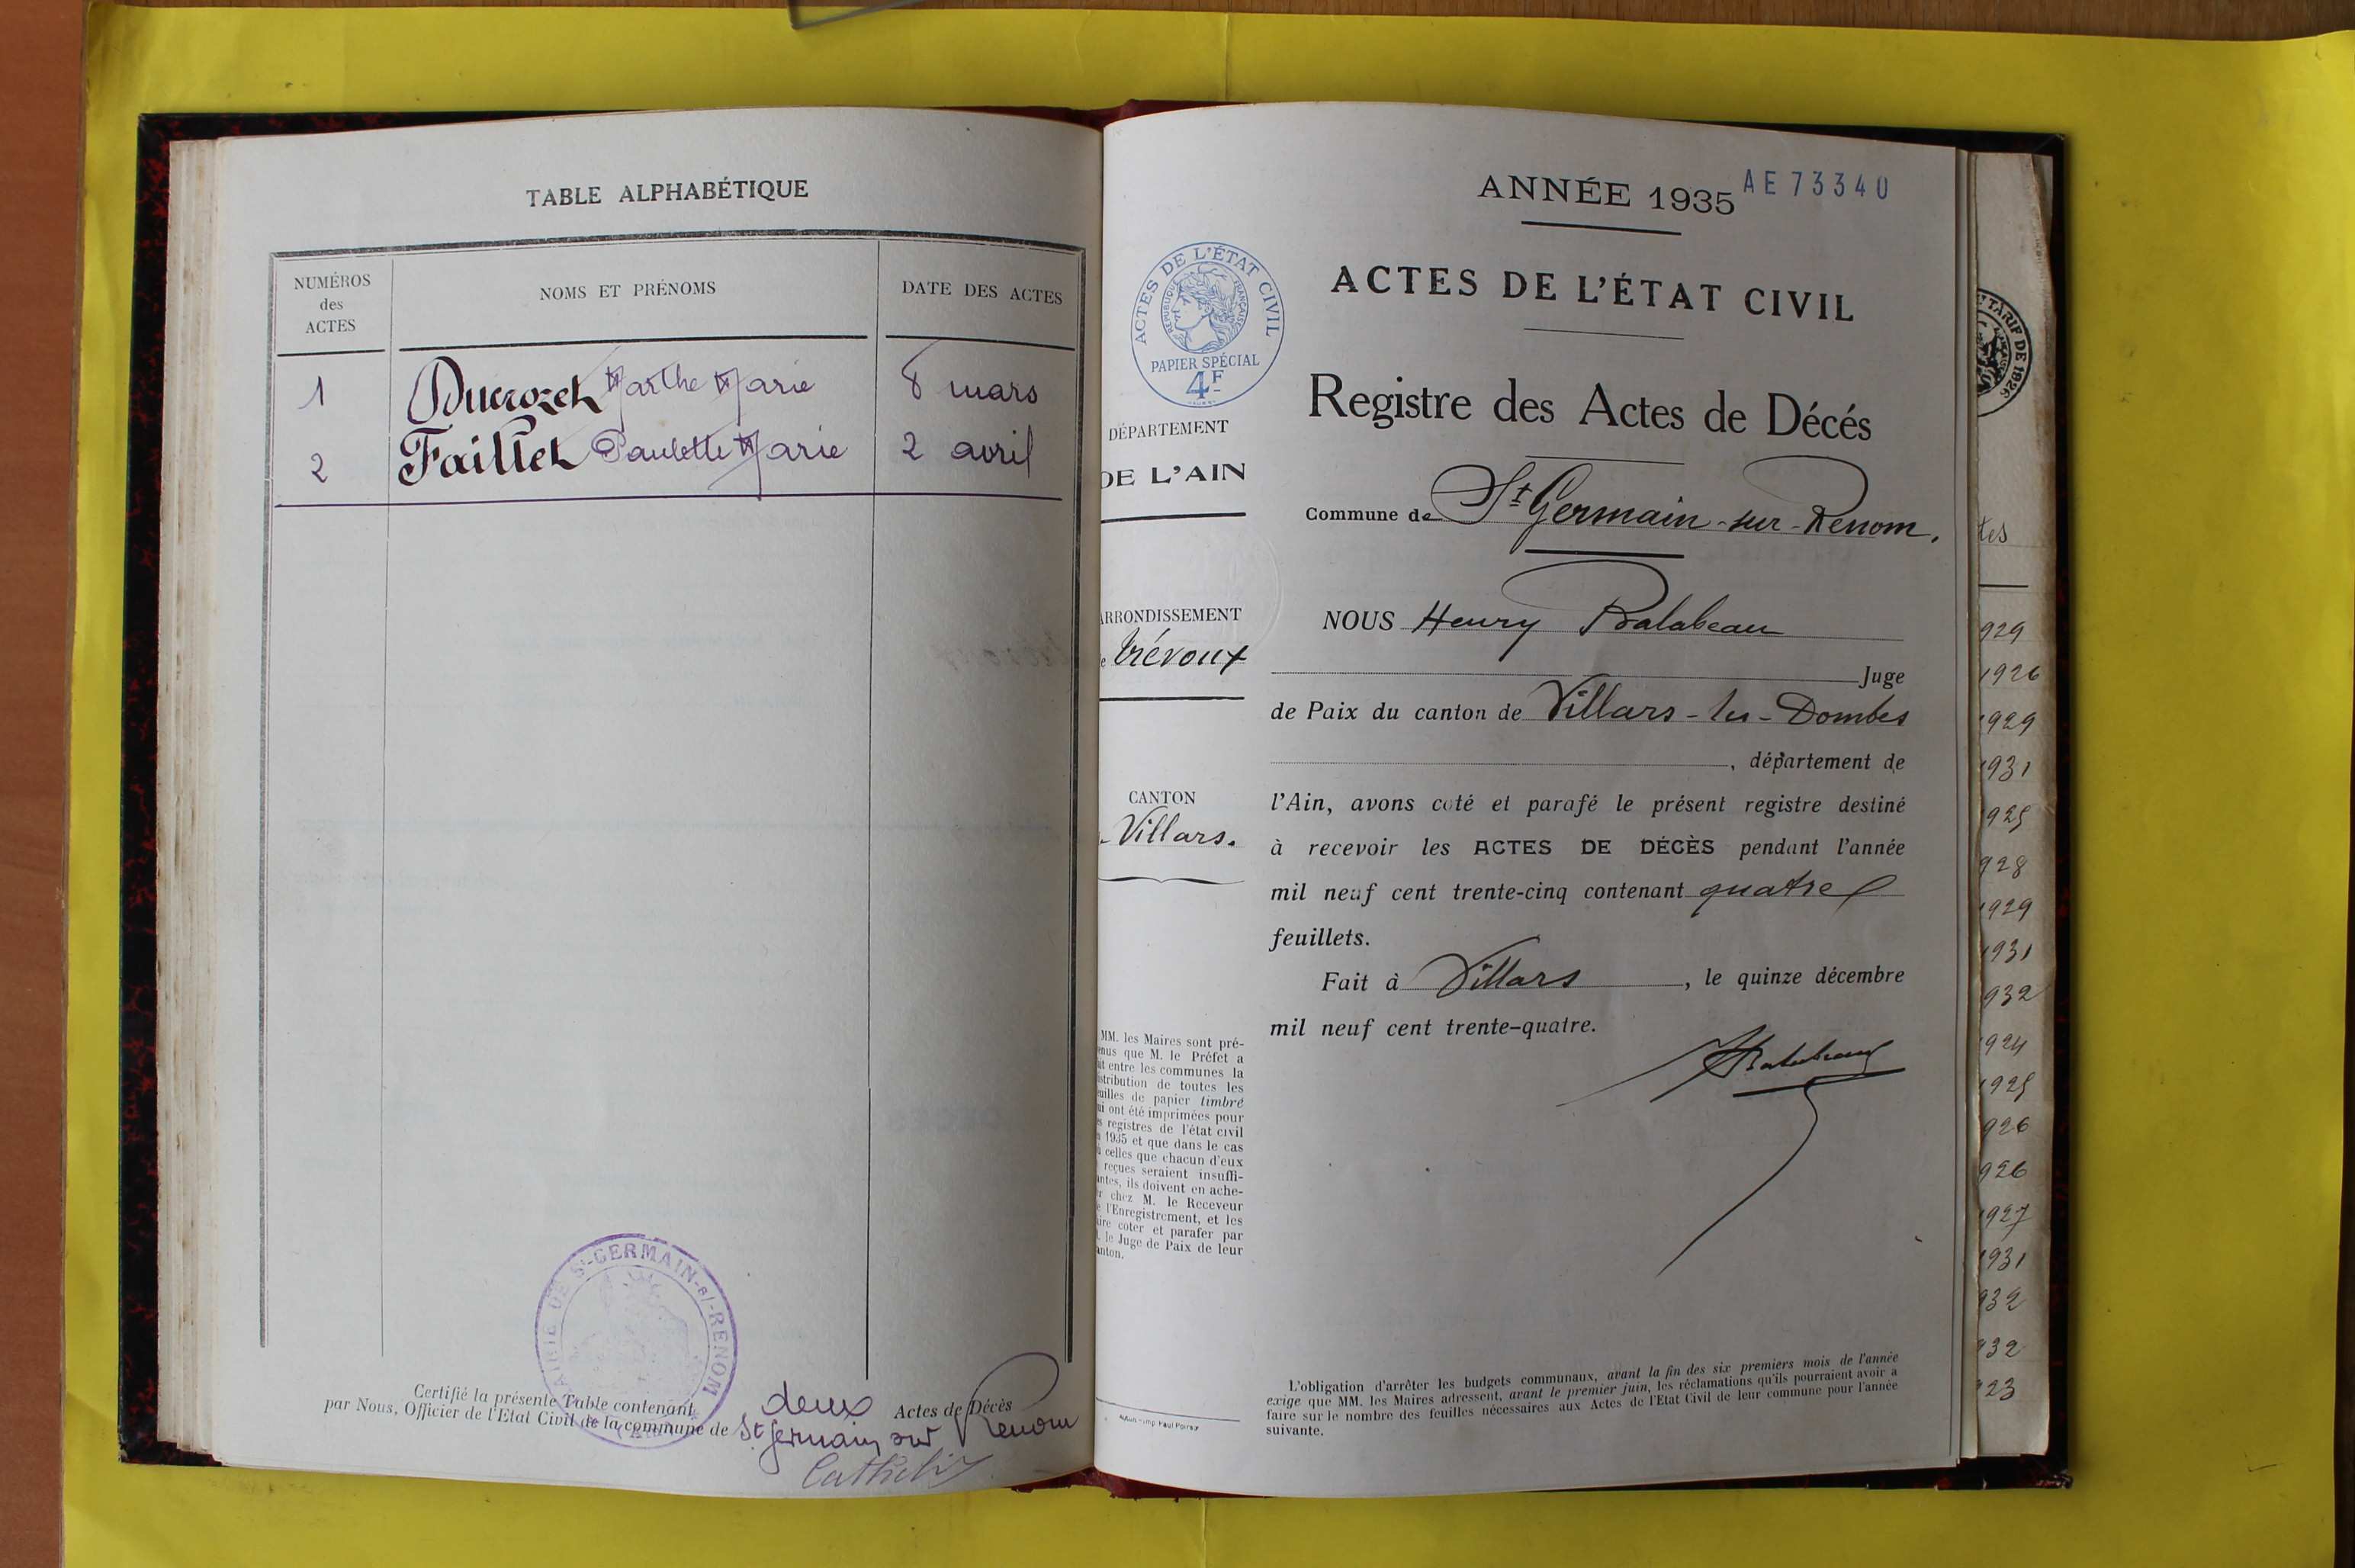 TABLE ALPHABÉTIQUE
NUMÉROS
des
ACTES
NOMS ET PRÉNOMS
DATE DES ACTES
1 Ducrozet Marthe Marie 8 mars
2 Faillet Paulette Marie 2 avril
MAIRIE DE St-GERMAIN-s/-RENOM
Certifié la présente Table contenant deux Actes de Décès
par Nous, Officier de l'Etat Civil de la commune de St Germain sur Renom
ANNÉE 1935
AE 73340
ACTES DE L'ÉTAT CIVIL
RÉPUBLIQUE FRANÇAISE
PAPIER SPÉCIAL
4F
DÉPARTEMENT
DE L'AIN
ARRONDISSEMENT
e Trévoux
CANTON
Villars.
MM. les Maires sont pré-
enus que M. le Préfet a
it entre les communes la
stribution de toutes les
uilles de papier timbré
ui ont été imprimées pour
s registres de l'état civil
n 1935 et que dans le cas
ù celles que chacun d'eux
reçues seraient insuffi-
antes, ils doivent en ache-
r chez M. le Receveur
e l'Enregistrement, et les
ire coter et parafer par
. le Juge de Paix de leur
anton.
ACTES DE L'ÉTAT CIVIL
Registre des Actes de Décés
Commune de St Germain-sur-Renom.
NOUS Henry Balabeau
Juge
de Paix du canton de Villars-les-Dombes
, département de
l'Ain, avons coté et parafé le présent registre destiné
à recevoir les ACTES DE DÉCÈS pendant l'année
mil neuf cent trente-cinq contenant quatre
feuillets.
Fait à Villars, le quinze décembre
mil neuf cent trente-quatre.
L'obligation d'arrêter les budgets communaux, avant la fin des six premiers mois de l'année
exige que MM. les Maires adressent, avant le premier juin, les réclamations qu'ils pourraient avoir à
faire sur le nombre des feuilles nécessaires aux Actes de l'Etat Civil de leur commune pour l'année
suivante.
TARIF DE 1926
tes
929
1926
1929
1931
925
928
1929
931
932
924
925
926
926
1927
1931
932
932
923